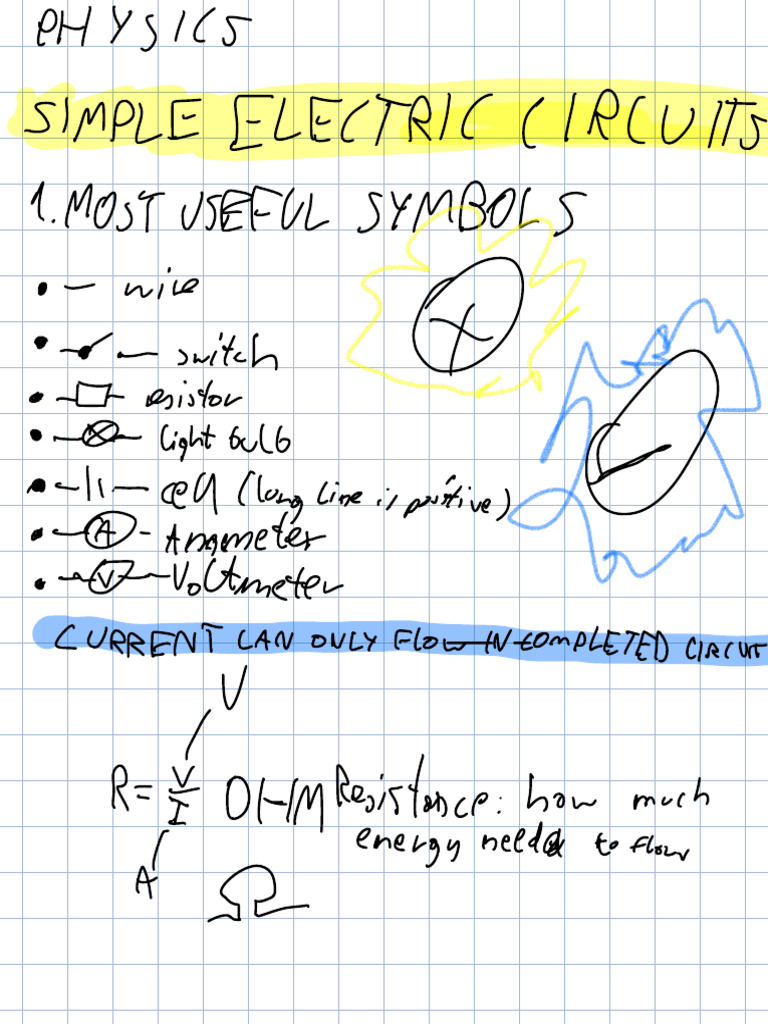 PHYSICS
SIMPLE ELECTRIC CIRCUITS
1. MOST USEFUL SYMBOLS
• wire
• switch
• resistor
• light bulb
• cell (long line is positive)
• A - Anameter
• V - Voltmeter
CURRENT CAN ONLY FLOW IN COMPLETED CIRCUIT
V
R = V/I OHM Resistance: how much
energy needed to flow
A
Ω